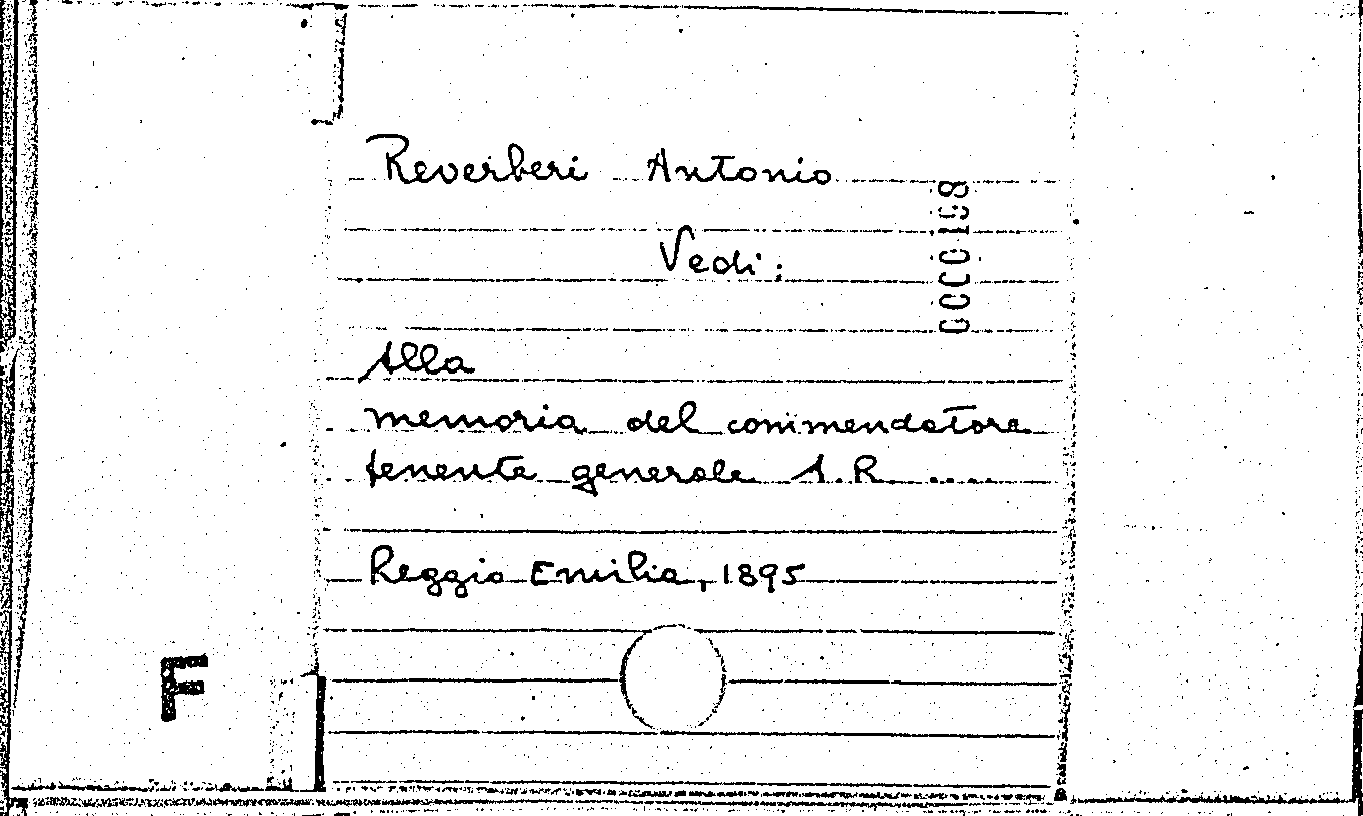 Reverberi Antonio
Vedi:
Alla
memoria del commendatore
tenente generale A.R. ....
Reggio Emilia, 1895
0000198
F